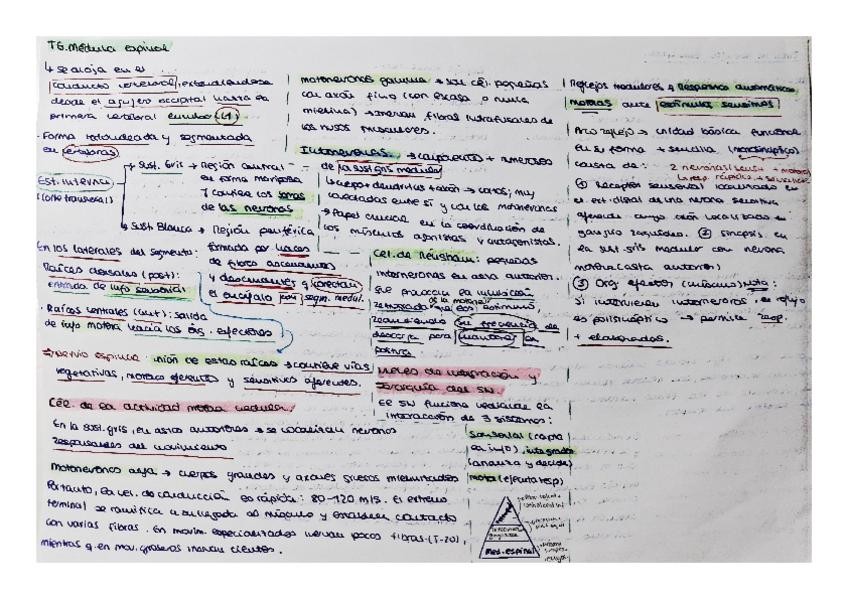 T6. Médula espinal
↳ se aloja en el
conducto vertebral, extendiéndose
desde el agujero occipital hasta la
primera vértebra lumbar (L1)
· Forma redondeada y segmentada
en vértebras
Est. interna
(corte transversal)
→ Sust. Gris → Región central
en forma mariposa
y contiene los somas
de las neuronas
→ Sust Blanca → Región periférica
formada por haces
de fibras ascendentes
y descendentes q conectan
el encéfalo con segm. medul.
En los laterales del segmento:
Raíces dorsales (post):
entrada de info sensorial
· Raíces ventrales (ant): salida
de info motora hacia los órg. efectores
⇒ Nervio espinal: unión de estas raíces → contiene vías
vegetativas, motora eferentes y sensitivas aferentes.
Cél. de la actividad motora medular
En la sust. gris, en astas anteriores → se localizan neuronas
responsables del movimiento
Motoneuronas alfa → cuerpos grandes y axones gruesos mielinizados
Por tanto, la vel. de conducción es rápida: 80-120 m/s. El extremo
terminal se ramifica a su llegada al músculo y establece contacto
con varias fibras. En movim. especializados inervan pocas fibras
mientras q en mov. groseros inervan cientos.
Motoneuronas gamma → son cél. pequeñas
con axón fino (con escasa o nula
mielina) → inervan fibras intrafusales de
los husos musculares.
Interneuronas → componente + numeroso
de la sust gris medular
↳ cuerpo + dendritas + axón → cortos; muy
conectadas entre sí y con las motoneuronas
→ Papel crucial en la coordinación de
los músculos agonistas y antagonistas.
Cél. de Renshaw: pequeñas
interneuronas en asta anterior.
de la motoneurona
su frecuencia de
descarga para mantener
Niveles de integración y
jerarquía del SN
El SN funciona mediante la
interacción de 3 sistemas:
Sensorial (capta
la info), integrador
(analiza y decide)
motor (ejecuta resp)
Med. espinal
Reflejos medulares → Respuestas automáticas
motoras ante estímulos sensitivos
Arco reflejo → unidad básica funcional
en su forma + sencilla (monosináptico)
consta de:
2 neuronas (sensit + motora)
↳ resp. rápidas + sencillas
① Receptor sensorial localizado en
el ext. distal de una neurona sensitiva
aferente cuyo soma localizado en
ganglio raquídeo. ② sinapsis en
la sust gris medular con neurona
motora (asta anterior)
③ Org efector (músculo) Nota:
Si intervienen interneuronas, el reflejo
es polisináptico → permite resp.
+ elaboradas.